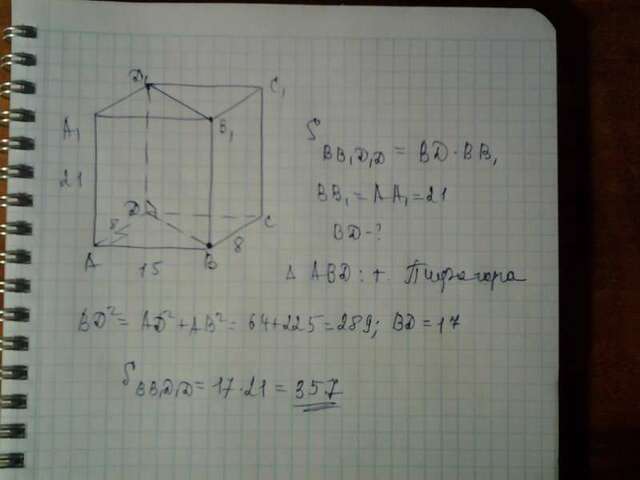 D₁
C₁
A₁
B₁
21
D
8
C
A
B
8
15
S BB₁D₁D = BD · BB₁
BB₁ = AA₁ = 21
BD - ?
Δ ABD : т. Пифагора
BD² = AD² + AB² = 64 + 225 = 289; BD = 17
S BB₁D₁D = 17 · 21 = 357